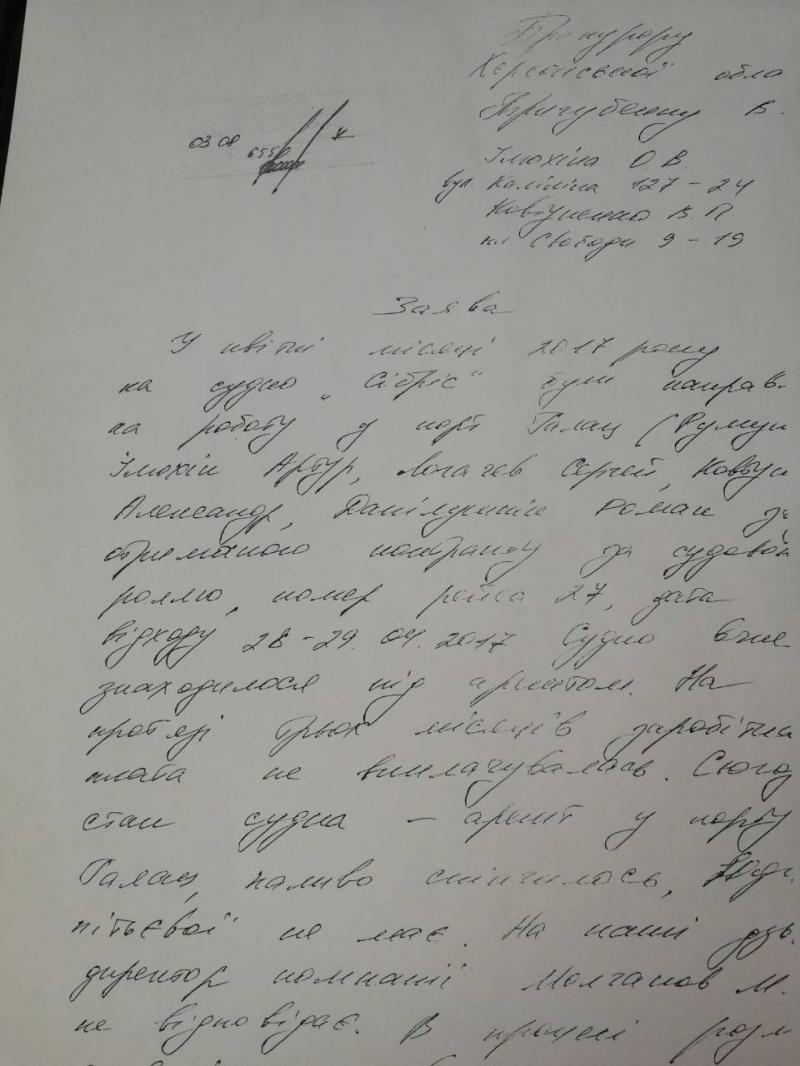 Прокурору
Херсонської обла
В.
Ілюхіна О.В.
вул. Калініна 127-24
Ковтуненко В.П
пл Свободи 9-19
03 08
Заява
У квітні місяці 2017 року
на судно „Сібріс" були направ-
на роботу у порт Галац (Румун
Ілюхін Артур, Логачев Сергей, Ковтун
Александр, Роман за
отриманого контракту за судовой
роллю, номер рейса 27, дата
відходу 28-29.04.2017 Судно вже
знаходилося під арештом. На
протязі трьох місяців заробітна
плата не виплачувалась. Сьогод
стан судна – арешт у порту
Галац, паливо скінчилось,
пітьєвої не має. На наші дзв.
директор компанії Молчанов М.
не відповідає. В процесі розм